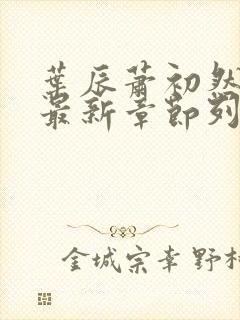 葉辰蕭初然
最新章節列
金城宗幸 野村